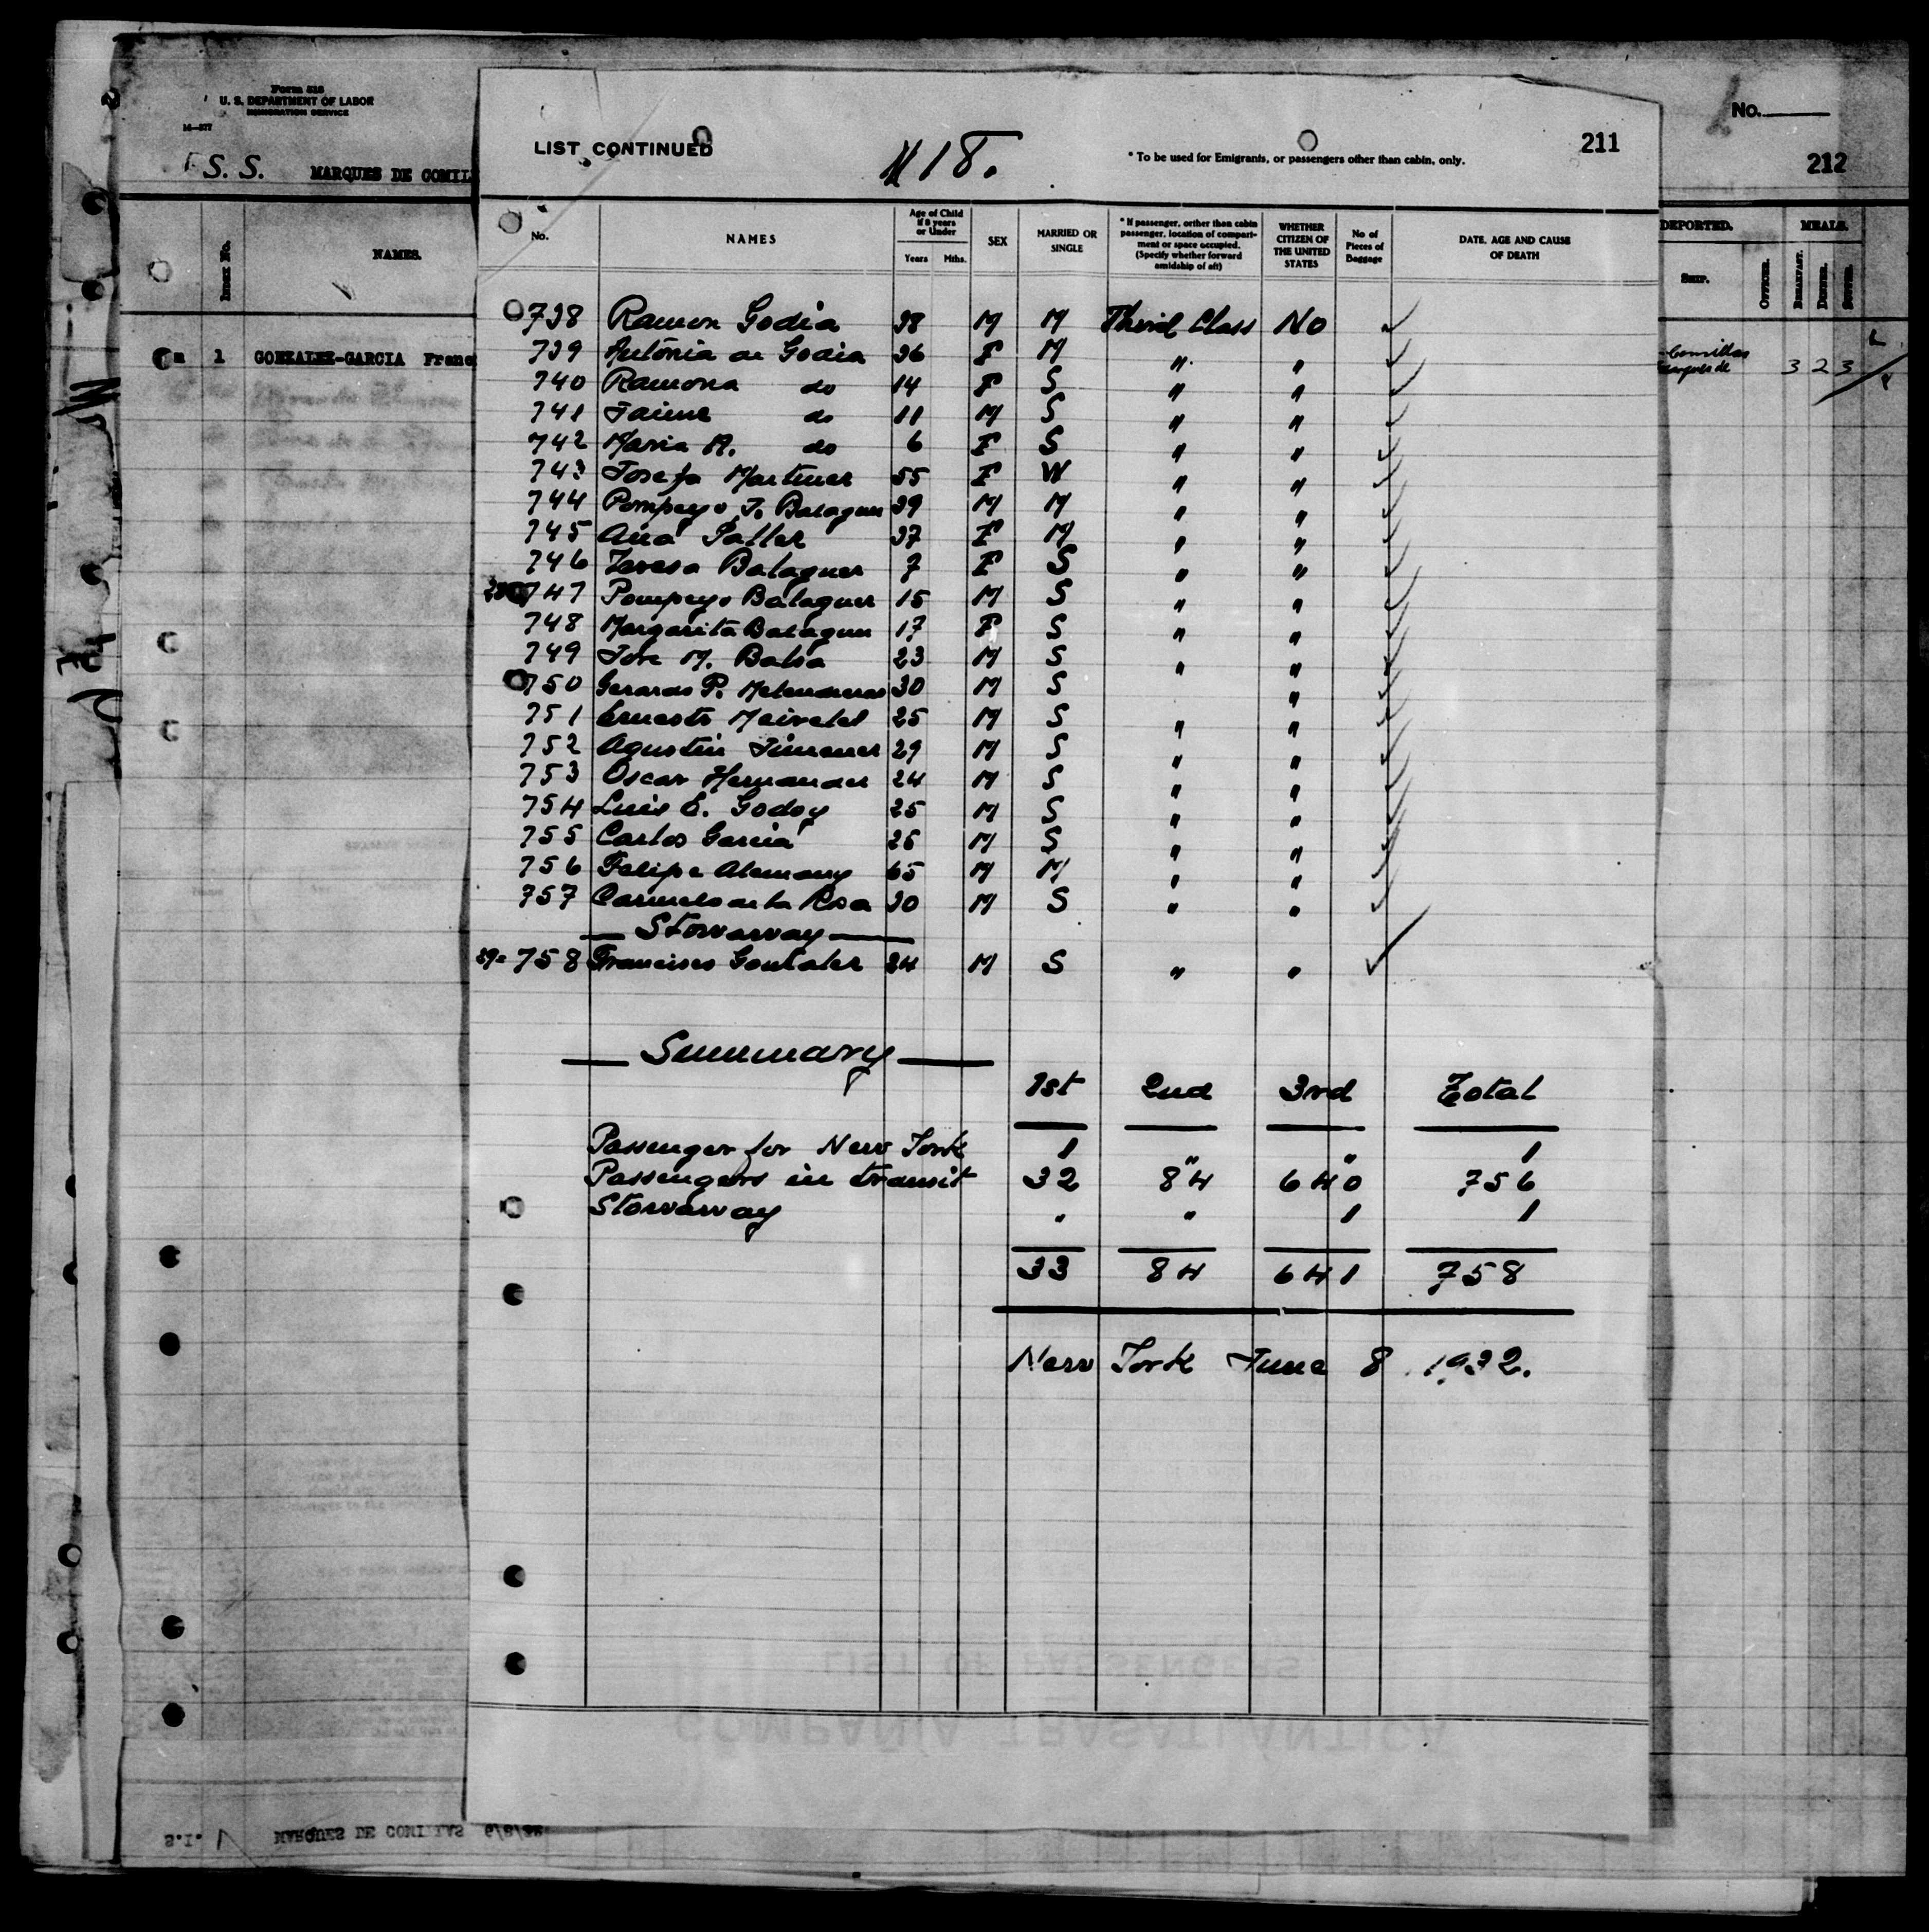 Form 518
U. S. DEPARTMENT OF LABOR
IMMIGRATION SERVICE
14—577
S. S. MARQUES DE COMIL
INDEX No.
NAMES.
1 GONZALEZ-GARCIA Franc
LIST CONTINUED
# 18.
* To be used for Emigrants, or passengers other than cabin, only.
211
No. NAMES Age of Child if 8 years or Under Years Mths. SEX MARRIED OR SINGLE * If passenger, orther than cabin passenger, location of compartment or space occupied. (Specify whether forward amidship of aft) WHETHER CITIZEN OF THE UNITED STATES No of Pieces of Baggage DATE, AGE AND CAUSE OF DEATH
738 Ramon Godia 38 M M Third Class No
739 Antónia de Godia 36 F M " "
740 Ramona do 14 F S " "
741 Jaime do 11 M S " "
742 Maria A. do 6 F S " "
743 Josefa Martinez 55 F W " "
744 Pompeyo J. Balaguer 39 M M " "
745 Ana 37 F M " "
746 Teresa Balaguer 7 F S " "
747 Pompeyo Balaguer 15 M S " "
748 Margarita Balaguer 17 F S " "
749 Jose M. Balsa 23 M S " "
750 Gerardo P. 30 M S "
751 Ernesto 25 M S " "
752 Agustin Jimenez 29 M S " "
753 Oscar Hernandez 24 M S " "
754 Luis E. Godoy 25 M S " "
755 Carlos Garcia 26 M S " "
756 Felipe Alemany 65 M M " "
757 Carmelo de la Rosa 30 M S " "
Stowaway
758 Francisco Gonzalez 24 M S " "
Summary
1st 2nd 3rd Total
Passenger for New York 1 " " 1
Passengers in transit 32 84 640 756
Stowaway " " 1 1
33 84 641 758
New York June 8 1932.
No.
212
DEPORTED. MEALS.
SHIP. OFFICER. BREAKFAST. DINNER. SUPPER.
Comillas
3 2 3
LIST OF PASSENGERS
COMPAÑIA TRASATLANTICA
S.I. MARQUES DE COMILLAS 6/8/32